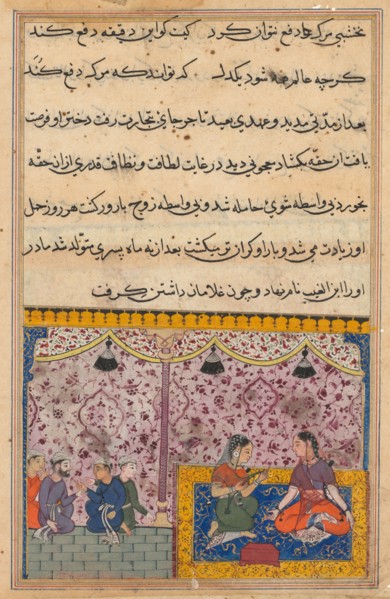 نخشبی مرک را دفع نتوان کرد کیت کو این دقیقه دفع کند
کرچه عالم همه شود یکدل که تواند که مرک دفع کند
بعد از مدتی مدید و عهدی بعید تاجر جای تجارت رفت دختر او فرصت
یافت آن حقه بکشاد معجونی دید در غایت لطافت و نظافت قدری از آن حقه
بخورد بی واسطه شوی حامله شد و بی واسطه زوج بارور کشت هر روز حمل
او زیادت می شد و بار او کران تر میکشت بعد از نه ماه پسری متولد شد مادر
او را ابن الغیب نام نهاد و چون غلامان داشتن کرفت